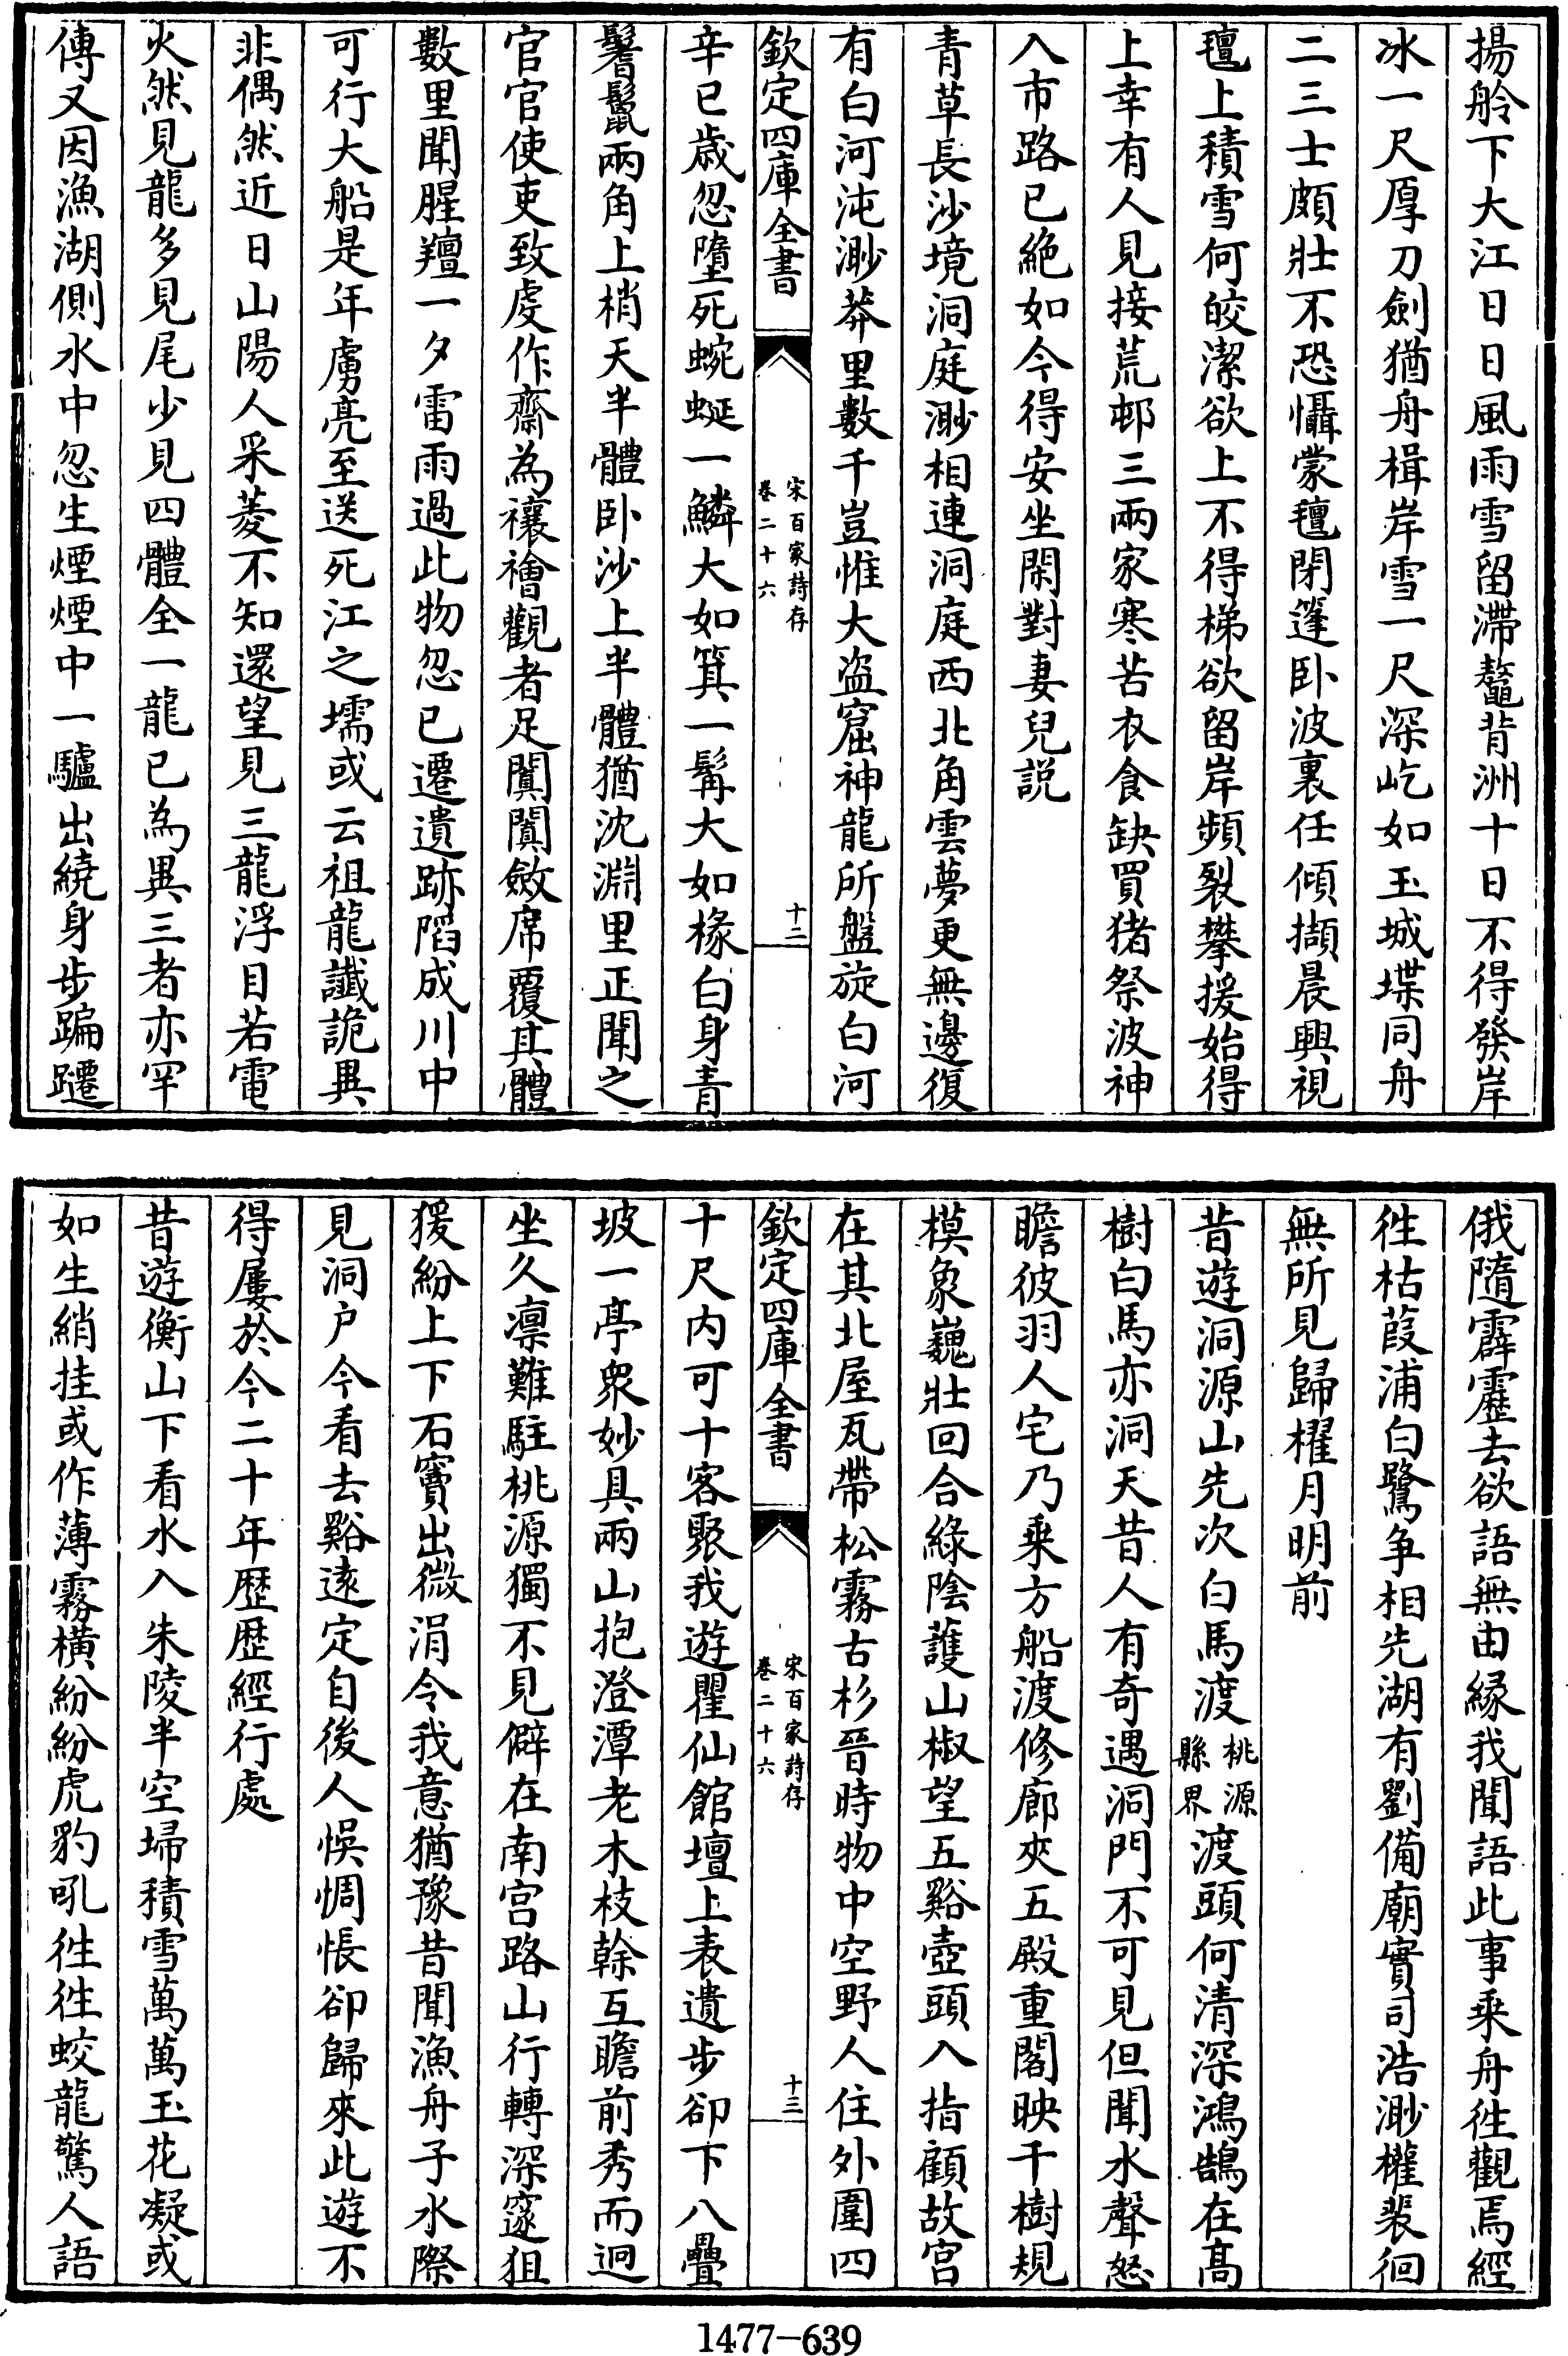 揚舲下大江日日風雨雪留滯鼇背洲十日不得發岸
冰一尺厚刀劍猶舟楫岸雪一尺深屹如玉城堞同舟
二三士頗壯不恐懾蒙氊閉篷卧波裏任傾擷晨興視
氊上積雪何皎潔欲上不得梯欲留岸頻裂攀援始得
上幸有人見接荒邨三兩家寒苦衣食缺買猪祭波神
入市路已絶如今得安坐閑對妻兒説
青草長沙境洞庭渺相連洞庭西北角雲夢更無邊復
有白河沌渺莽里數千豈惟大盜窟神龍所盤旋白河
欽定四庫全書
宋百家詩存
卷二十六
十二
辛巳歳忽墮死蜿蜒一鱗大如箕一髯大如椽白身青
鬐鬛兩角上梢天半體卧沙上半體猶沈淵里正聞之
官官使吏致虔作齋為禳禬觀者足闐闐斂席覆其體
數里聞腥羶一夕雷雨過此物忽已遷遺跡陷成川中
可行大船是年虜亮至送死江之壖或云祖龍讖詭異
非偶然近日山陽人采菱不知還望見三龍浮目若電
火然見龍多見尾少見四體全一龍已為異三者亦罕
傳又因漁湖側水中忽生煙煙中一驢出繞身步蹁躚
俄隨霹靂去欲語無由縁我聞語此事乘舟徃觀焉經
徃枯葭浦白鷺争相先湖有劉備廟實司浩渺權裴徊
無所見歸櫂月明前
昔遊洞源山先次白馬渡桃源縣界渡頭何清深鴻鵠在高
樹白馬亦洞天昔人有奇遇洞門不可見但聞水聲怒
瞻彼羽人宅乃乘方船渡修廊夾五殿重閣映千樹規
模象巍壯回合綠陰護山椒望五谿壺頭入指顧故宮
在其北屋瓦帶松霧古杉晉時物中空野人住外圍四
欽定四庫全書
宋百家詩存
卷二十六
十三
十尺内可十客聚我遊瞿仙館壇上表遺步卻下八疊
坡一亭衆妙具兩山抱澄潭老木枝榦互瞻前秀而迥
坐久凛難駐桃源獨不見僻在南宮路山行轉深窔狙
猨紛上下石竇出微涓令我意猶豫昔聞漁舟子水際
見洞户今看去谿逺定自後人悞惆悵卻歸來此遊不
得屢於今二十年歴歴經行處
昔遊衡山下看水入朱陵半空埽積雪萬萬玉花凝或
如生綃挂或作薄霧橫紛紛虎豹吼徃徃蛟龍驚人語
1477-639